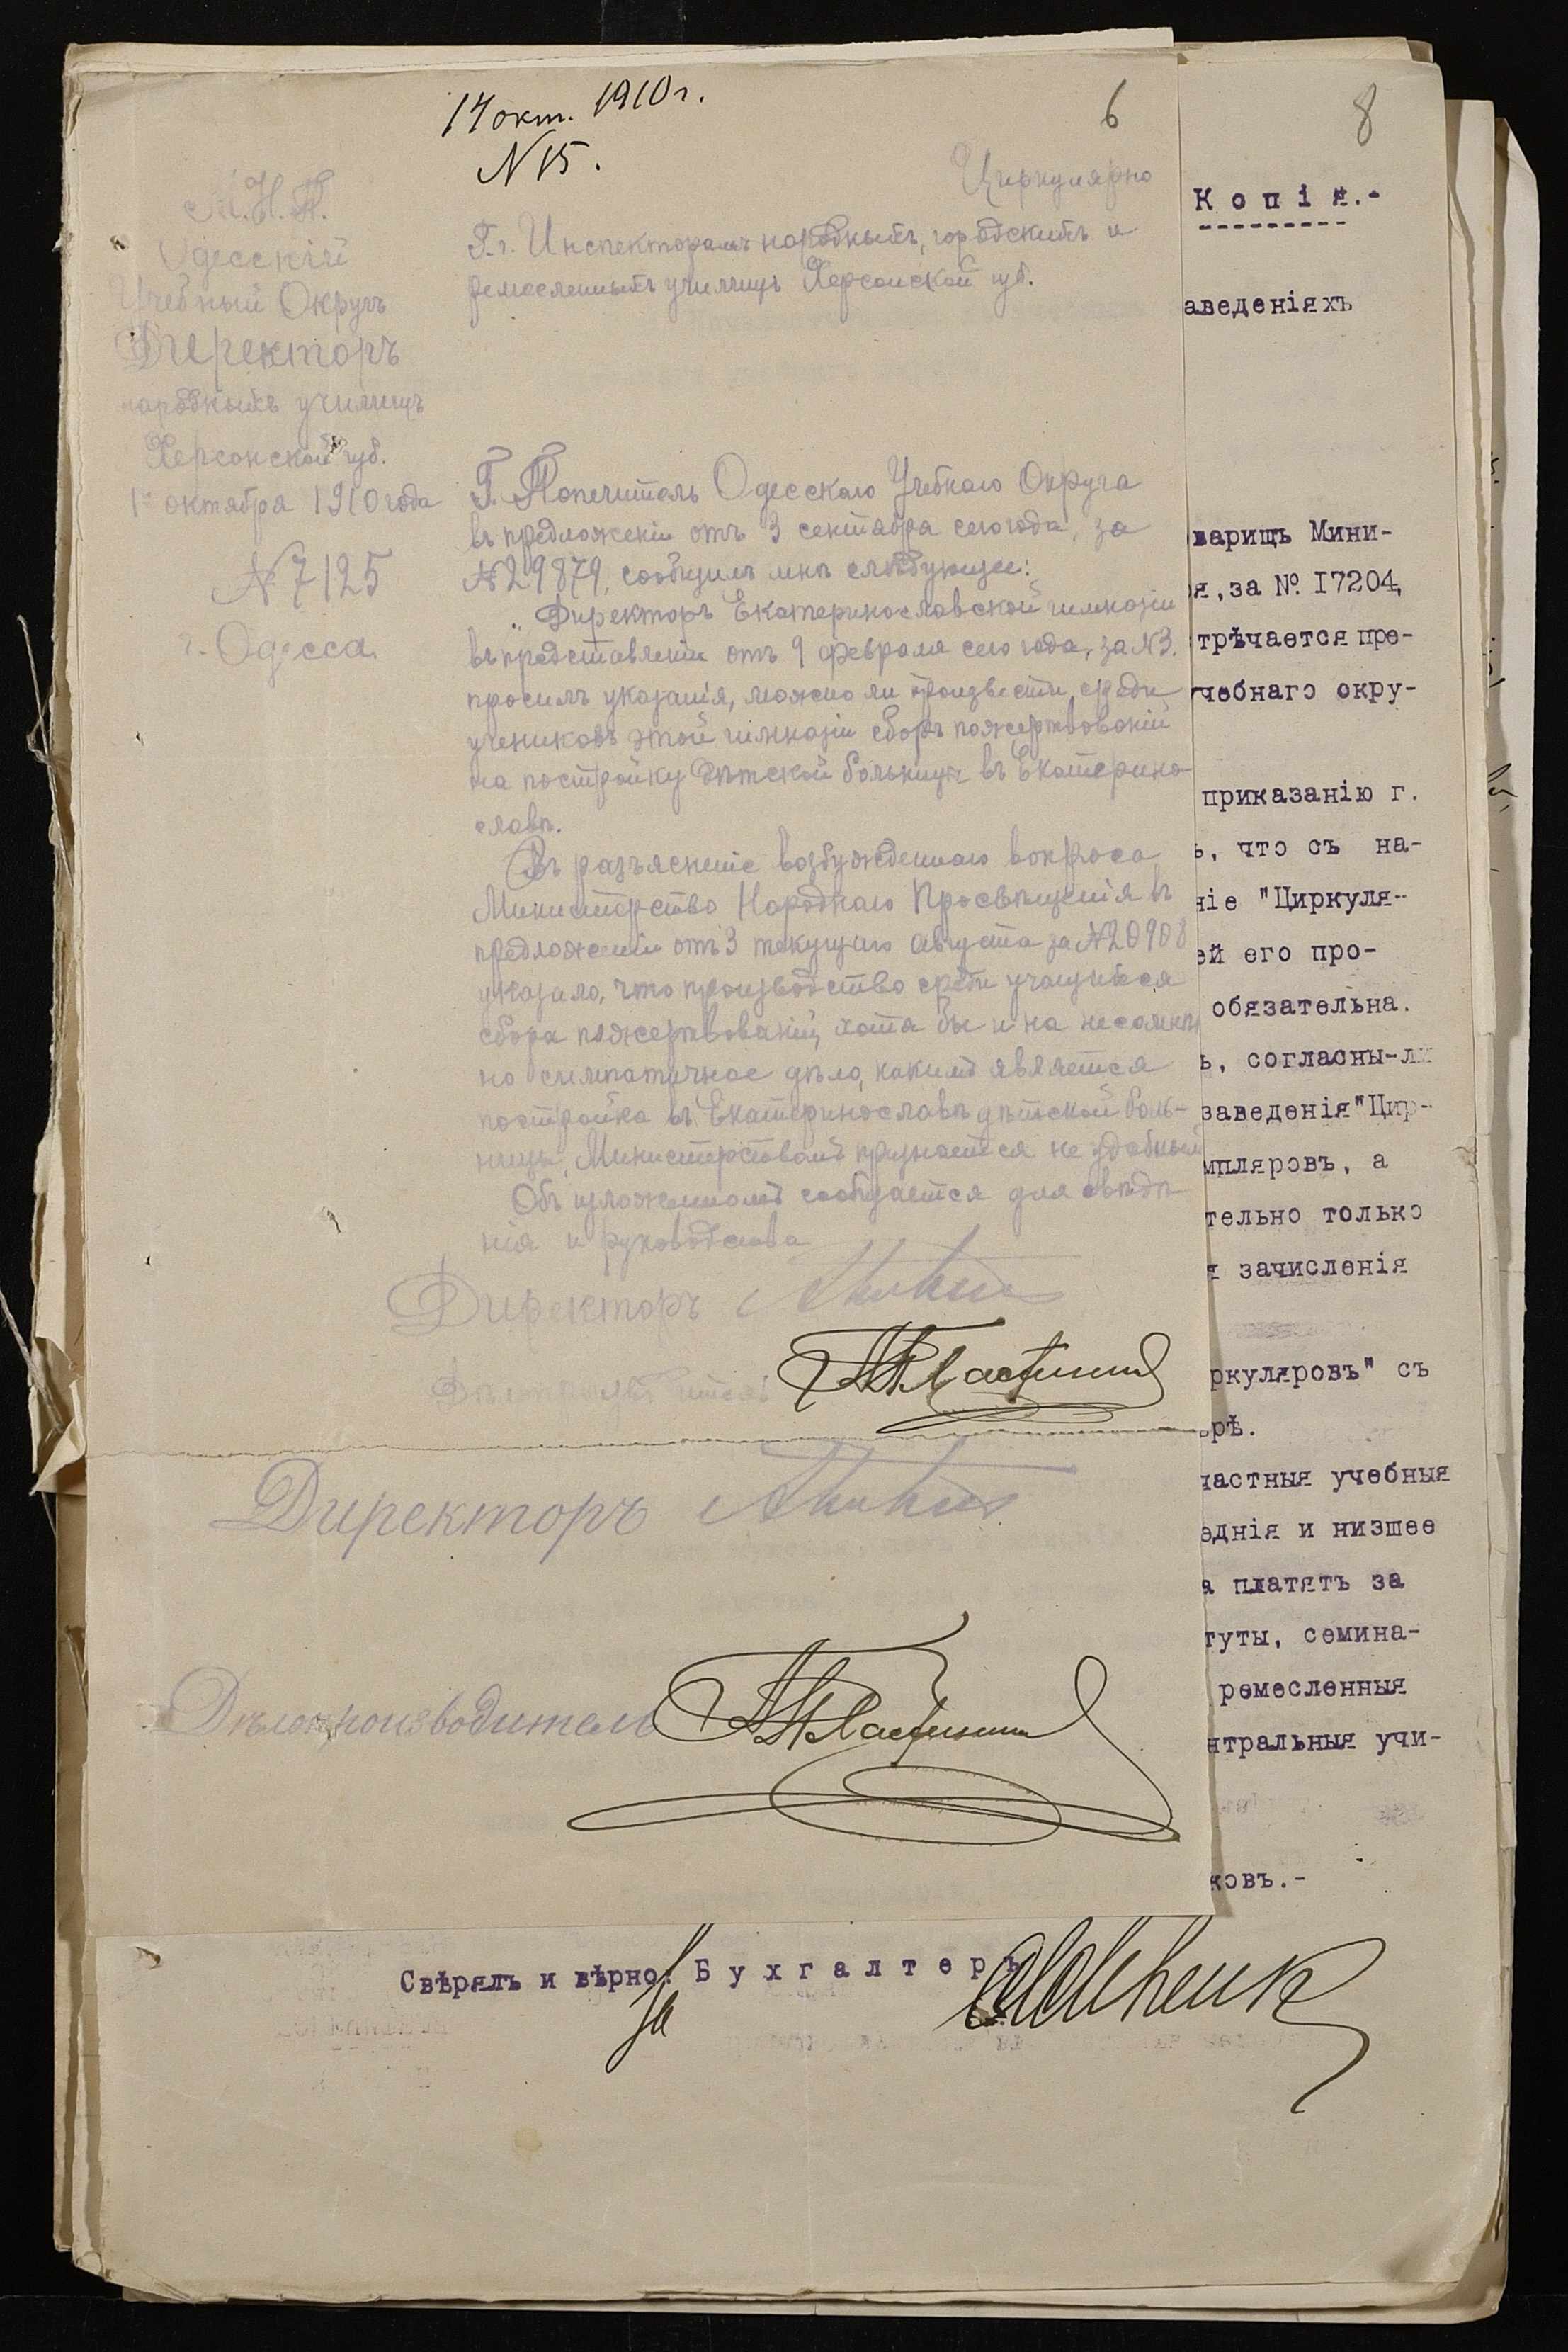 14 окт. 1910 г.
N 15.
6
8
М.Н.П.
Одесскій
Учебный Округъ
Директоръ
народныхъ училищъ
Херсонской губ.
октября 1910 года
№ 7125
г. Одесса.
Циркулярно
Г.г. Инспекторамъ народныхъ, городскихъ и
ремесленныхъ училищъ Херсонской губ.
Г. Попечитель Одесскаго Учебнаго Округа
въ предложеніи отъ 3 сентября сего года, за
№ 29879, сообщилъ мнѣ слѣдующее:
„Директоръ Екатеринославской гимназіи
въ представленіи отъ 9 февраля сего года, за №
просилъ указанія, можно ли произвести среди
учениковъ этой гимназіи сборъ пожертвованій
на постройку дѣтской больницы въ Екатерино-
славѣ.
Въ разъясненіе возбужденнаго вопроса
Министерство Народнаго Просвѣщенія въ
предложеніи отъ 3 текущаго августа за № 20908
указало, что производство среди учащихся
сбора пожертвованій, хотя бы и на несомнѣн
но симпатичное дѣло, какимъ является
постройка въ Екатеринославѣ дѣтской боль-
ницы, Министерствомъ признается не удобнымъ
Объ изложенномъ сообщается для свѣдѣ-
нія и руководства
Директоръ
Директоръ
Дѣлопроизводитель
К о п і я.-
аведеніяхъ
варищъ Мини-
я, за №. I7204,
трѣчается пре-
чебнаго окру-
приказанію г.
ь, что съ на-
ніе "Циркуля-
ей его про-
обязательна.
ь, согласны-ли
заведенія "Цир-
мпляровъ, а
тельно только
я зачисленія
ркуляровъ" съ
рѣ.
частныя учебныя
еднія и низшее
а платятъ за
туты, семина-
ремесленныя
нтральныя учи-
ковъ.-
Свѣрялъ и вѣрно: Б у х г а л т е р ъ
За